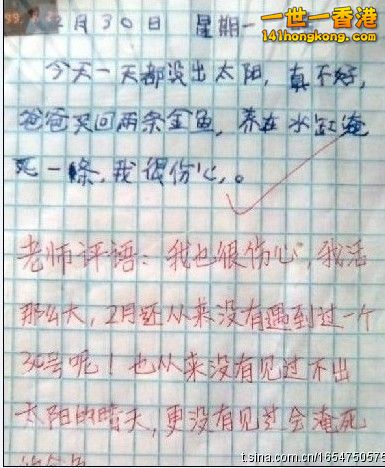 一世一香港
141hongkong.com
2月30日 星期一
今天一天都没出太阳,真不好,
爸爸买回两条金鱼,养在水缸淹
死一條,我很伤心。
老师评语:我也很伤心,我活
那么大,2月还从来没有遇到过一个
30号呢!也从来没有见过不出
太阳的晴天,更没有见过会淹死
t.sina.com.cn/1654750575